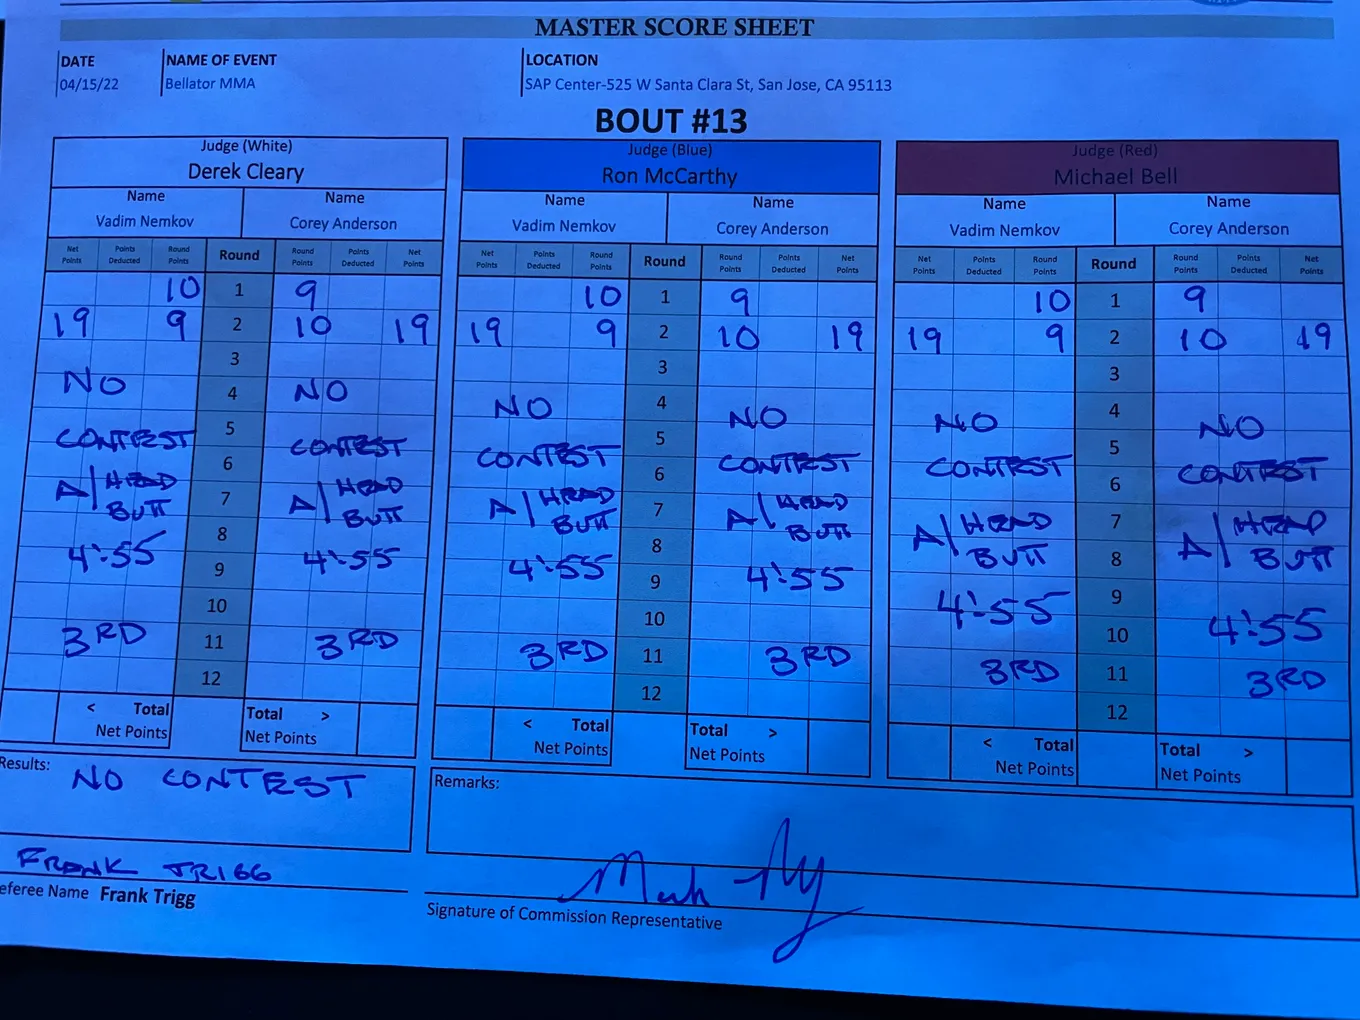 MASTER SCORE SHEET
DATE NAME OF EVENT LOCATION
04/15/22 Bellator MMA SAP Center-525 W Santa Clara St, San Jose, CA 95113
BOUT #13
Judge (White) Judge (Blue) Judge (Red)
Derek Cleary Ron McCarthy Michael Bell
Name Name Name Name Name Name
Vadim Nemkov Corey Anderson Vadim Nemkov Corey Anderson Vadim Nemkov Corey Anderson
Net Points Points Deducted Round Points Round Round Points Points Deducted Net Points Net Points Points Deducted Round Points Round Round Points Points Deducted Net Points Net Points Points Deducted Round Points Round Round Points Points Deducted Net Points
10 1 9 10 1 9 10 1 9
19 9 2 10 19 19 9 2 10 19 19 9 2 10 19
3 3 3
NO 4 NO NO 4 NO NO 4 NO
CONTEST 5 CONTEST CONTEST 5 CONTEST CONTEST 5 CONTEST
6 6 6
A/HEAD BUTT 7 A/HEAD BUTT A/HEAD BUTT 7 A/HEAD BUTT A/HEAD BUTT 7 A/HEAD BUTT
8 8 8
4:55 9 4:55 4:55 9 4:55 4:55 9 4:55
10 10 10
3RD 11 3RD 3RD 11 3RD 3RD 11 3RD
12 12 12
< Total Total > < Total Total > < Total Total >
Net Points Net Points Net Points Net Points Net Points Net Points
Results: NO CONTEST Remarks:
FRANK TRIGG
eferee Name Frank Trigg
Signature of Commission Representative